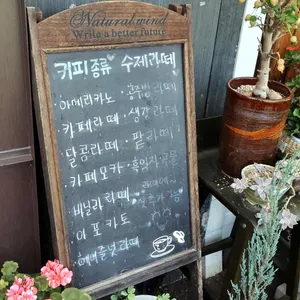 Natural wind
Write a better future
커피종류 ♥ 수제라떼
·아메리카노 ·공주밤라떼
·카페라떼 ·생강라떼
·달콤라떼 ·팥라떼
·카페모카 ·흑임자
·바닐라라떼 라떼
·아포카토
·헤이즐넛라떼